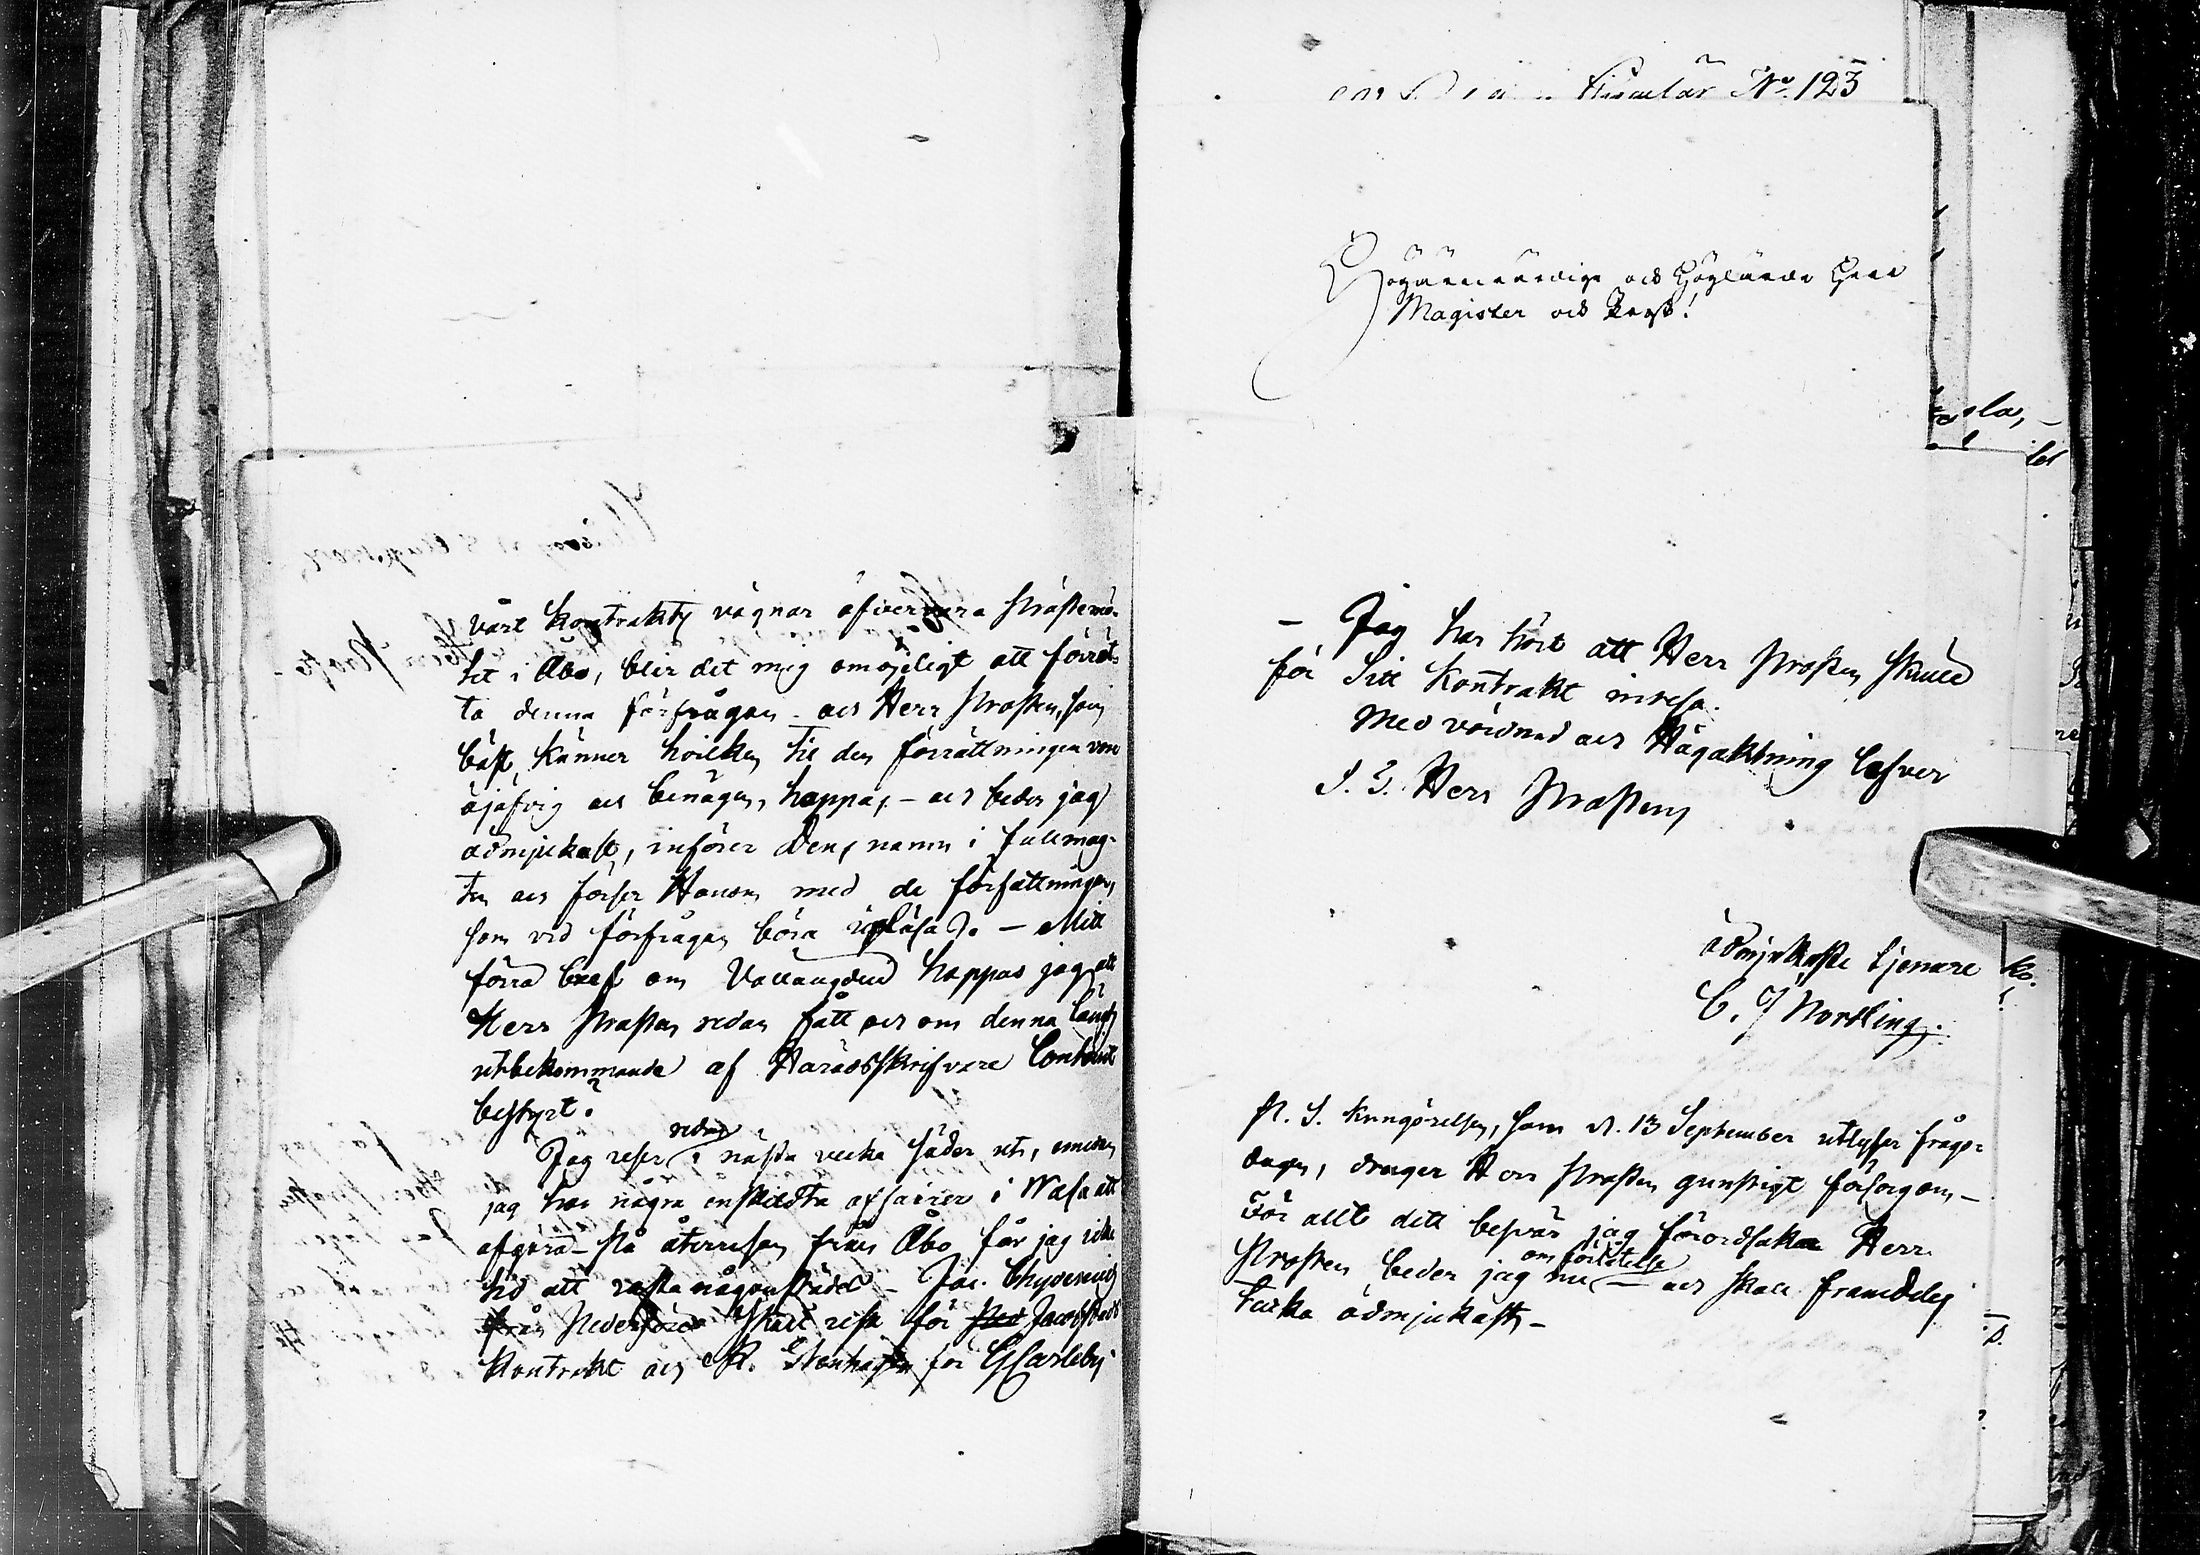 vårt Kontrakts vägnar öfvervara Prostemö-
tet i Åbo, blir det mig omöjeligt att förrät-
ta denna förfrågan. och Herr Prosten, som
bäst känner hvilken til den förrättningen vore
ojäfvig och benägen, hoppas, - och beder jag
ödmjukast, införer dens namn i fullmag-
ten och förser Honom med de författningar,
som vid förfrågan böra upläsas. - Mitt
förra bref om hoppas jag att
Herr Prosten redan fått och om denna längds
utbekommande af Häradsskrifvare
bestyrt.
Jag reser redan i nästa vecka söder ut, emedan
jag har några enskildta affairer i Wasa att
afgöra - På återresan från Åbo får jag icke
tid att rasta någonstädes - Jac. Chydenius
från Nedervetil skall resa för Jacobstads
Kontrakt och R. Stenhagen för GCarleby
Circulär No. 123
Högärevördige och Höglärde Herr
Magister och Prost!
- Jag har hört att Herr Prosten skulle
för Sitt Kontrakt inresa.
Med vördnad och Högaktning lefver
S. T. Herr Prostens
ödmjukaste tjenare
C. J Nordling.
P. S. Kungörelsen, som d. 13 September utlyser fråge-
dagen, drager Herr Prosten gunstigt försorg om, -
För allt ditt besvär jag förordsakar Herr
Prosten beder jag nu om förlåtelse och skall framdeles
tacka ödmjukast, -